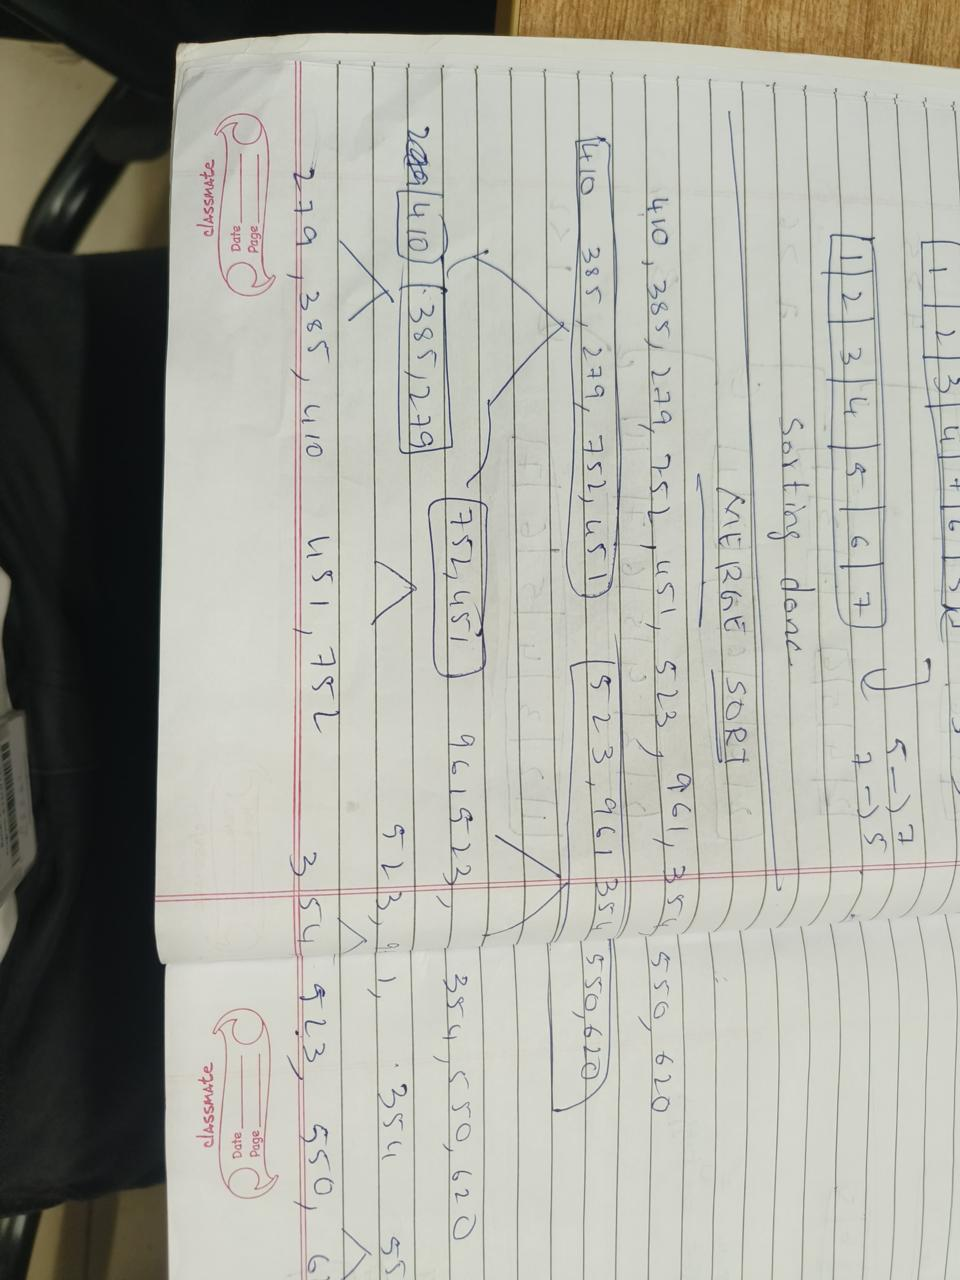 1 2 3 4 7 6 5
5 → 7
1 2 3 4 5 6 7
7 → 5
Sorting done
MERGE SORT
410, 385, 279, 752, 451, 523, 961, 354, 550, 620
410 385, 279, 752, 451 523, 961 354 550, 620
752, 451 961 523, 354, 550, 620
410 385, 279 523, 91, 354 55
279, 385, 410 451, 752 354 523, 550, 6
classmate
Date
Page
classmate
Date
Page